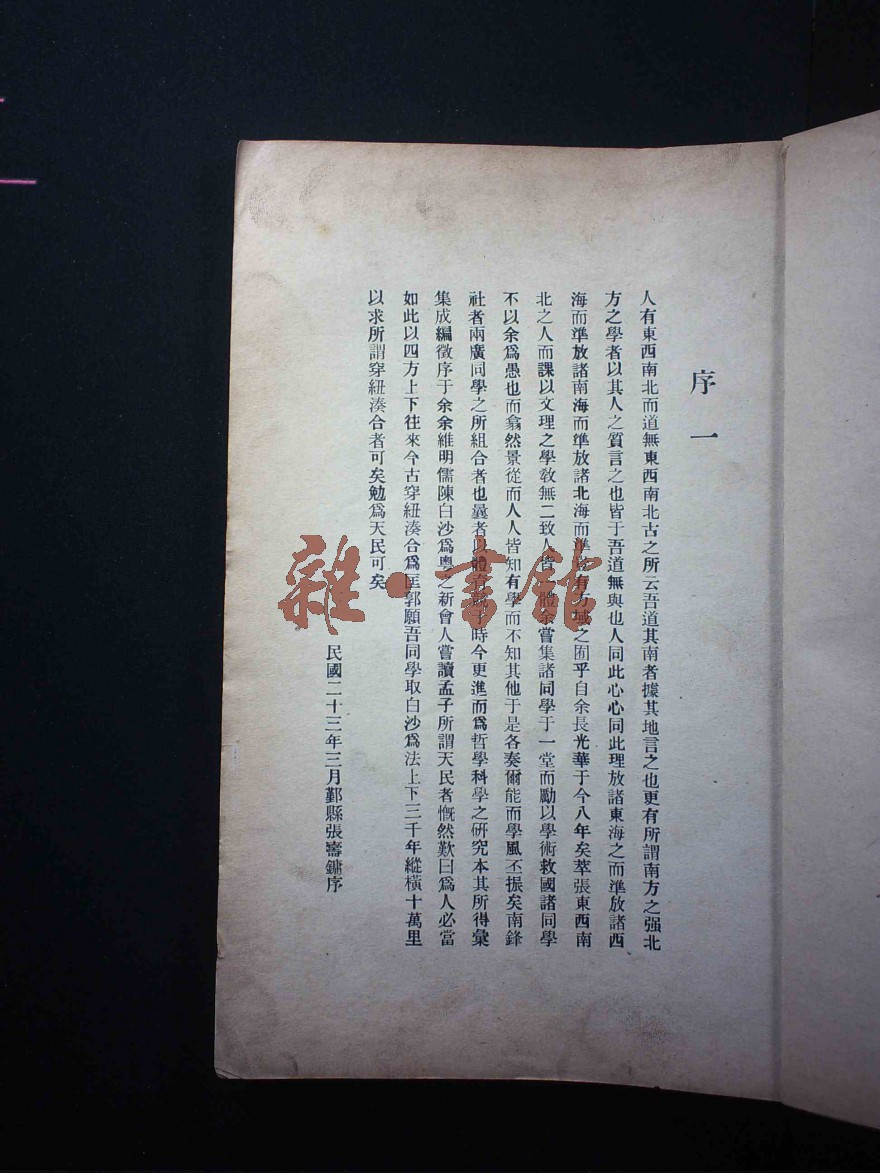 序一
人有東西南北而道無東西南北古之所云吾道其南者據其地言之也更有所謂南方之强北
方之學者以其人之質言之也皆于吾道無與也人同此心心同此理放諸東海之而準放諸西
海而準放諸南海而準放諸北海而準豈有方域之囿乎自余長光華于今八年矣萃張東西南
北之人而課以文理之學敎無二致人皆一體余嘗集諸同學于一堂而勵以學術救國諸同學
不以余爲愚也而翕然景從而人人皆知有學而不知其他于是各奏爾能而學風丕振矣南鋒
社者兩廣同學之所組合者也曩者以體育競于時今更進而爲哲學科學之研究本其所得彙
集成編徵序于余余維明儒陳白沙爲粵之新會人嘗讀孟子所謂天民者慨然歎曰爲人必當
如此以四方上下往來今古穿紐湊合爲匡郭願吾同學取白沙爲法上下三千年縱橫十萬里
以求所謂穿紐湊合者可矣勉爲天民可矣
民國二十三年三月鄞縣張壽鏞序
雜·書館